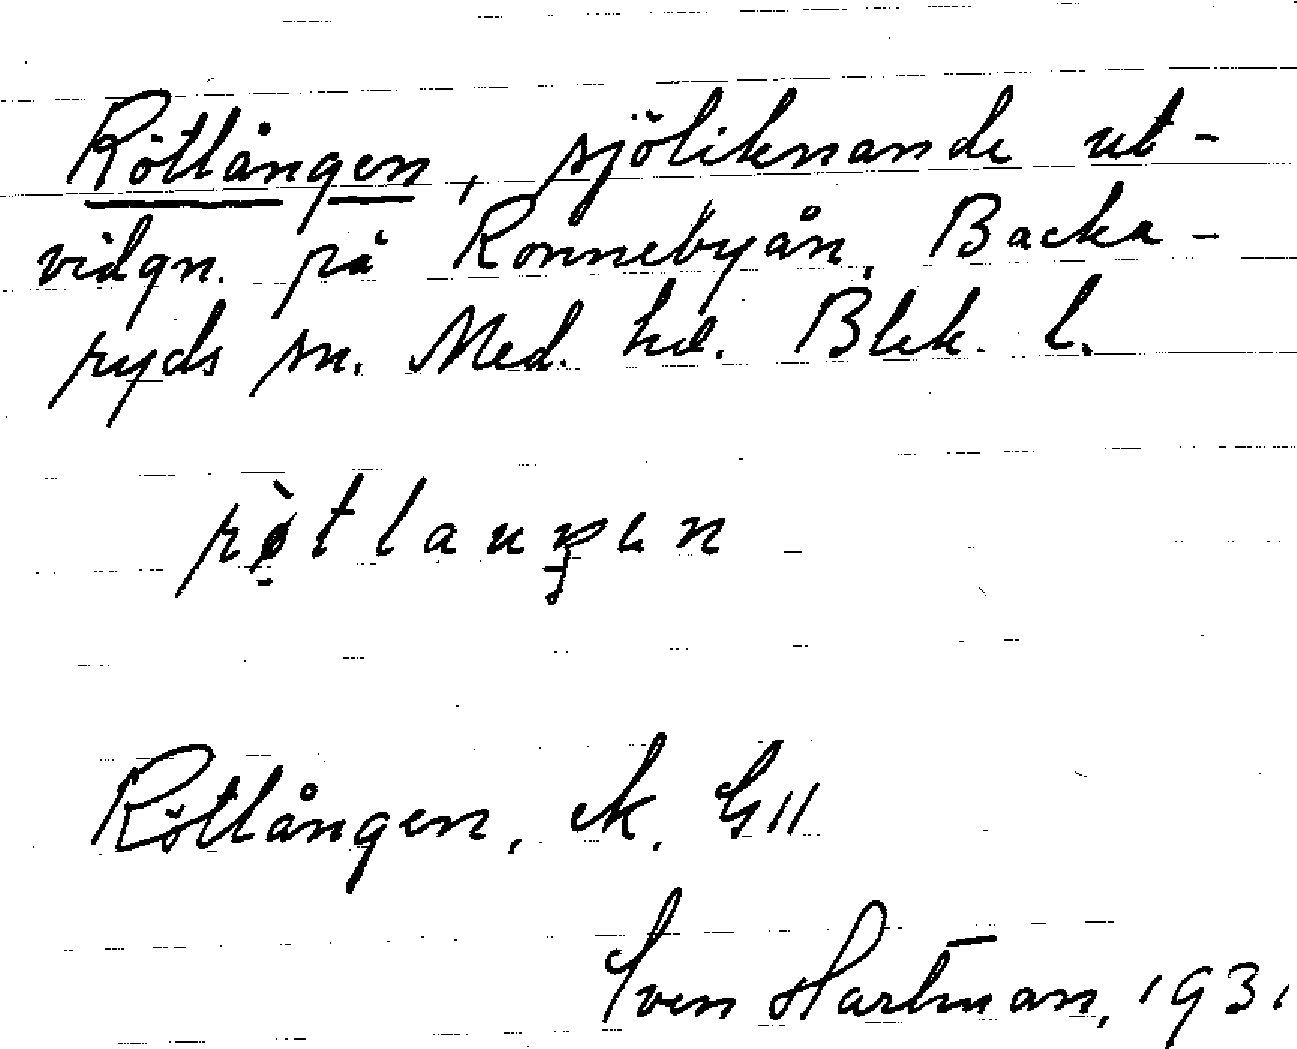 Rötlången, sjöliknande ut-
vidgn. på Ronnebyån, Backa-
ryds sn. Med. hd. Blek. l.
Rötlången, ek. G11
Sven Hartman, 1931